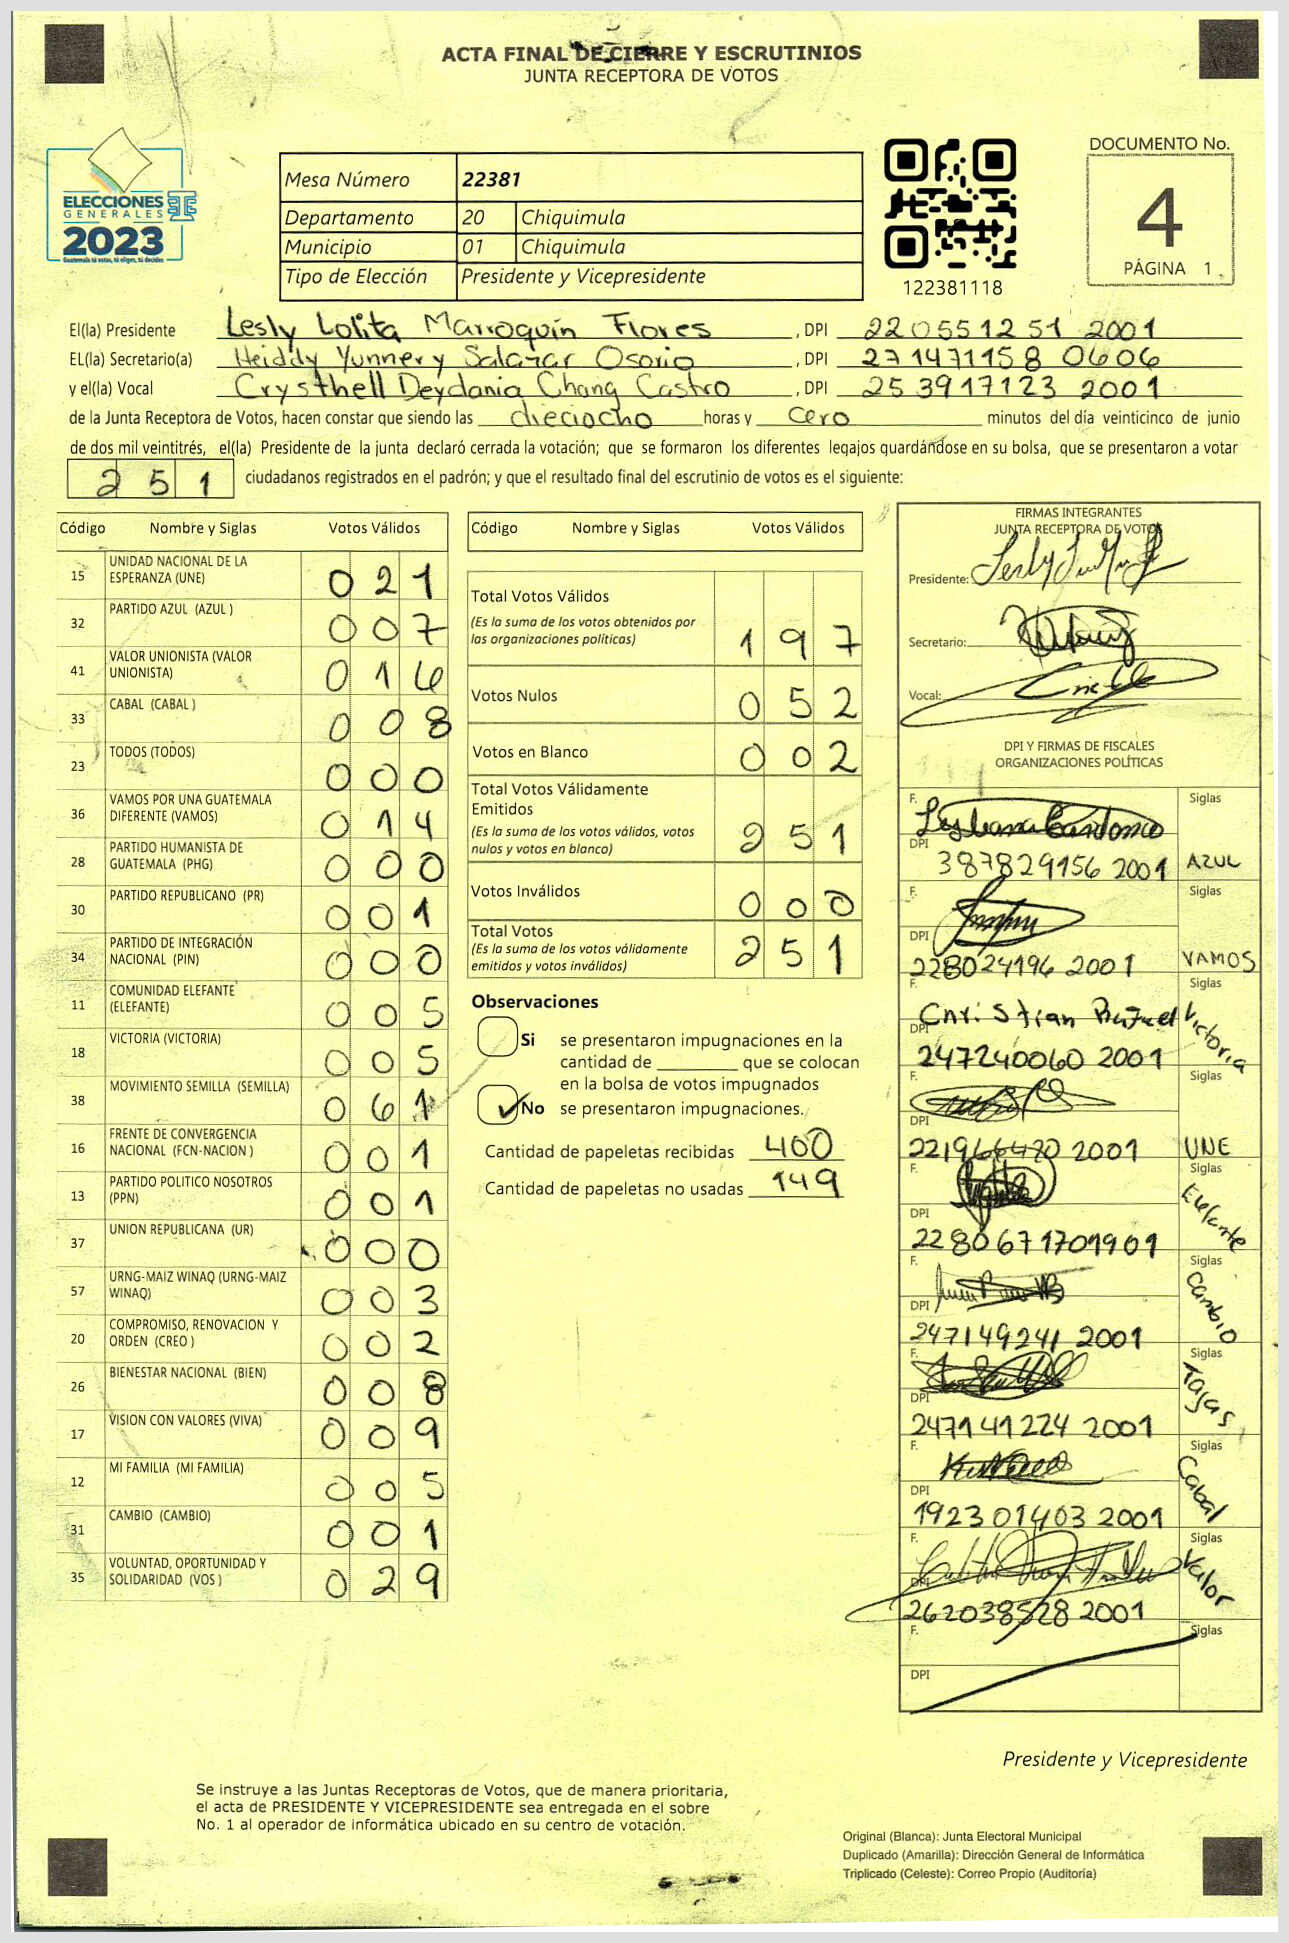 ACTA FINAL DE CIERRE Y ESCRUTINIOS
JUNTA RECEPTORA DE VOTOS
ELECCIONES
GENERALES
2023
Guatemala tú votas, tú eliges, tú decides
Mesa Número 22381
Departamento 20 Chiquimula
Municipio 01 Chiquimula
Tipo de Elección Presidente y Vicepresidente
122381118
DOCUMENTO No.
4
PÁGINA 1
El(la) Presidente Lesly Lolita Marroquín Flores , DPI 220551251 2001
EL(la) Secretario(a) Heiddy Yunnery Salazar Osorio , DPI 271471158 0606
y el(la) Vocal Crysthell Deydania Chang Castro , DPI 253917123 2001
de la Junta Receptora de Votos, hacen constar que siendo las dieciocho horas y cero minutos del día veinticinco de junio
de dos mil veintitrés, el(la) Presidente de la junta declaró cerrada la votación; que se formaron los diferentes legajos quardándose en su bolsa, que se presentaron a votar
251 ciudadanos registrados en el padrón; y que el resultado final del escrutinio de votos es el siguiente:
Código Nombre y Siglas Votos Válidos
15 UNIDAD NACIONAL DE LA
ESPERANZA (UNE) 021
32 PARTIDO AZUL (AZUL ) 007
41 VALOR UNIONISTA (VALOR
UNIONISTA) 016
33 CABAL (CABAL ) 008
23 TODOS (TODOS) 000
36 VAMOS POR UNA GUATEMALA
DIFERENTE (VAMOS) 014
28 PARTIDO HUMANISTA DE
GUATEMALA (PHG) 000
30 PARTIDO REPUBLICANO (PR) 001
34 PARTIDO DE INTEGRACIÓN
NACIONAL (PIN) 000
11 COMUNIDAD ELEFANTE
(ELEFANTE) 005
18 VICTORIA (VICTORIA) 005
38 MOVIMIENTO SEMILLA (SEMILLA) 061
16 FRENTE DE CONVERGENCIA
NACIONAL (FCN-NACION ) 001
13 PARTIDO POLITICO NOSOTROS
(PPN) 001
37 UNION REPUBLICANA (UR) 000
57 URNG-MAIZ WINAQ (URNG-MAIZ
WINAQ) 003
20 COMPROMISO, RENOVACION Y
ORDEN (CREO ) 002
26 BIENESTAR NACIONAL (BIEN) 008
17 VISION CON VALORES (VIVA) 009
12 MI FAMILIA (MI FAMILIA) 005
31 CAMBIO (CAMBIO) 001
35 VOLUNTAD, OPORTUNIDAD Y
SOLIDARIDAD (VOS ) 029
Código Nombre y Siglas Votos Válidos
Total Votos Válidos
(Es la suma de los votos obtenidos por
las organizaciones políticas) 197
Votos Nulos 052
Votos en Blanco 002
Total Votos Válidamente
Emitidos
(Es la suma de los votos válidos, votos
nulos y votos en blanco) 251
Votos Inválidos 000
Total Votos
(Es la suma de los votos válidamente
emitidos y votos inválidos) 251
Observaciones
Si se presentaron impugnaciones en la
cantidad de ________ que se colocan
en la bolsa de votos impugnados
No se presentaron impugnaciones.
Cantidad de papeletas recibidas 400
Cantidad de papeletas no usadas 149
FIRMAS INTEGRANTES
JUNTA RECEPTORA DE VOTOS
Presidente:
Secretario:
Vocal:
DPI Y FIRMAS DE FISCALES
ORGANIZACIONES POLÍTICAS
F. Siglas
DPI 387829156 2001 AZUL
F. Siglas
DPI
228024196 2001 VAMOS
F. Siglas
DPI Victoria
247240060 2001
F. Siglas
DPI
221966480 2001 UNE
F. Siglas
DPI Elefante
2280671701901
F. Siglas
DPI Cambio
247149241 2001
F. Siglas
DPI
247141224 2001
F. Siglas
DPI Cabal
192301403 2001
F. Siglas
DPI Valor
262038528 2001
F. Siglas
DPI
Presidente y Vicepresidente
Se instruye a las Juntas Receptoras de Votos, que de manera prioritaria,
el acta de PRESIDENTE Y VICEPRESIDENTE sea entregada en el sobre
No. 1 al operador de informática ubicado en su centro de votación.
Original (Blanca): Junta Electoral Municipal
Duplicado (Amarilla): Dirección General de Informática
Triplicado (Celeste): Correo Propio (Auditoría)